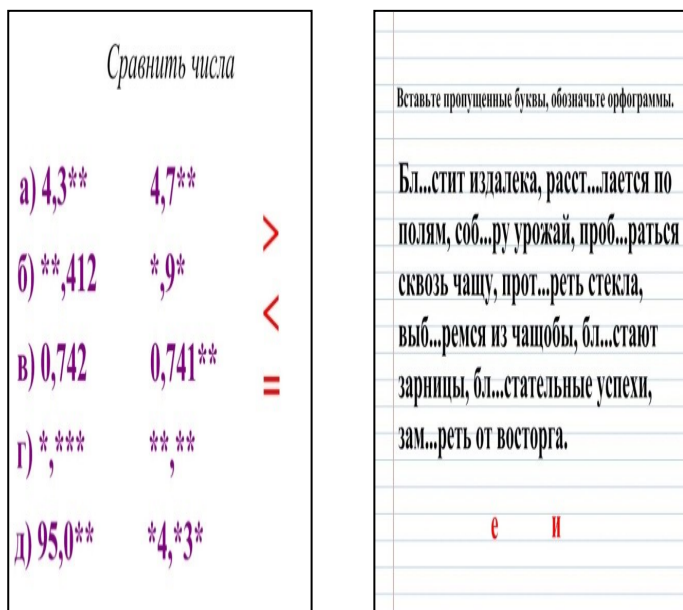 Сравнить числа
а) 4,3** 4,7**
б) **,412 *,9*
в) 0,742 0,741**
г) *,*** **,**
д) 95,0** *4,*3*
>
<
=
Вставьте пропущенные буквы, обозначьте орфограммы.
Бл...стит издалека, расст...лается по
полям, соб...ру урожай, проб...раться
сквозь чащу, прот...реть стекла,
выб...ремся из чащобы, бл...стают
зарницы, бл...стательные успехи,
зам...реть от восторга.
е и